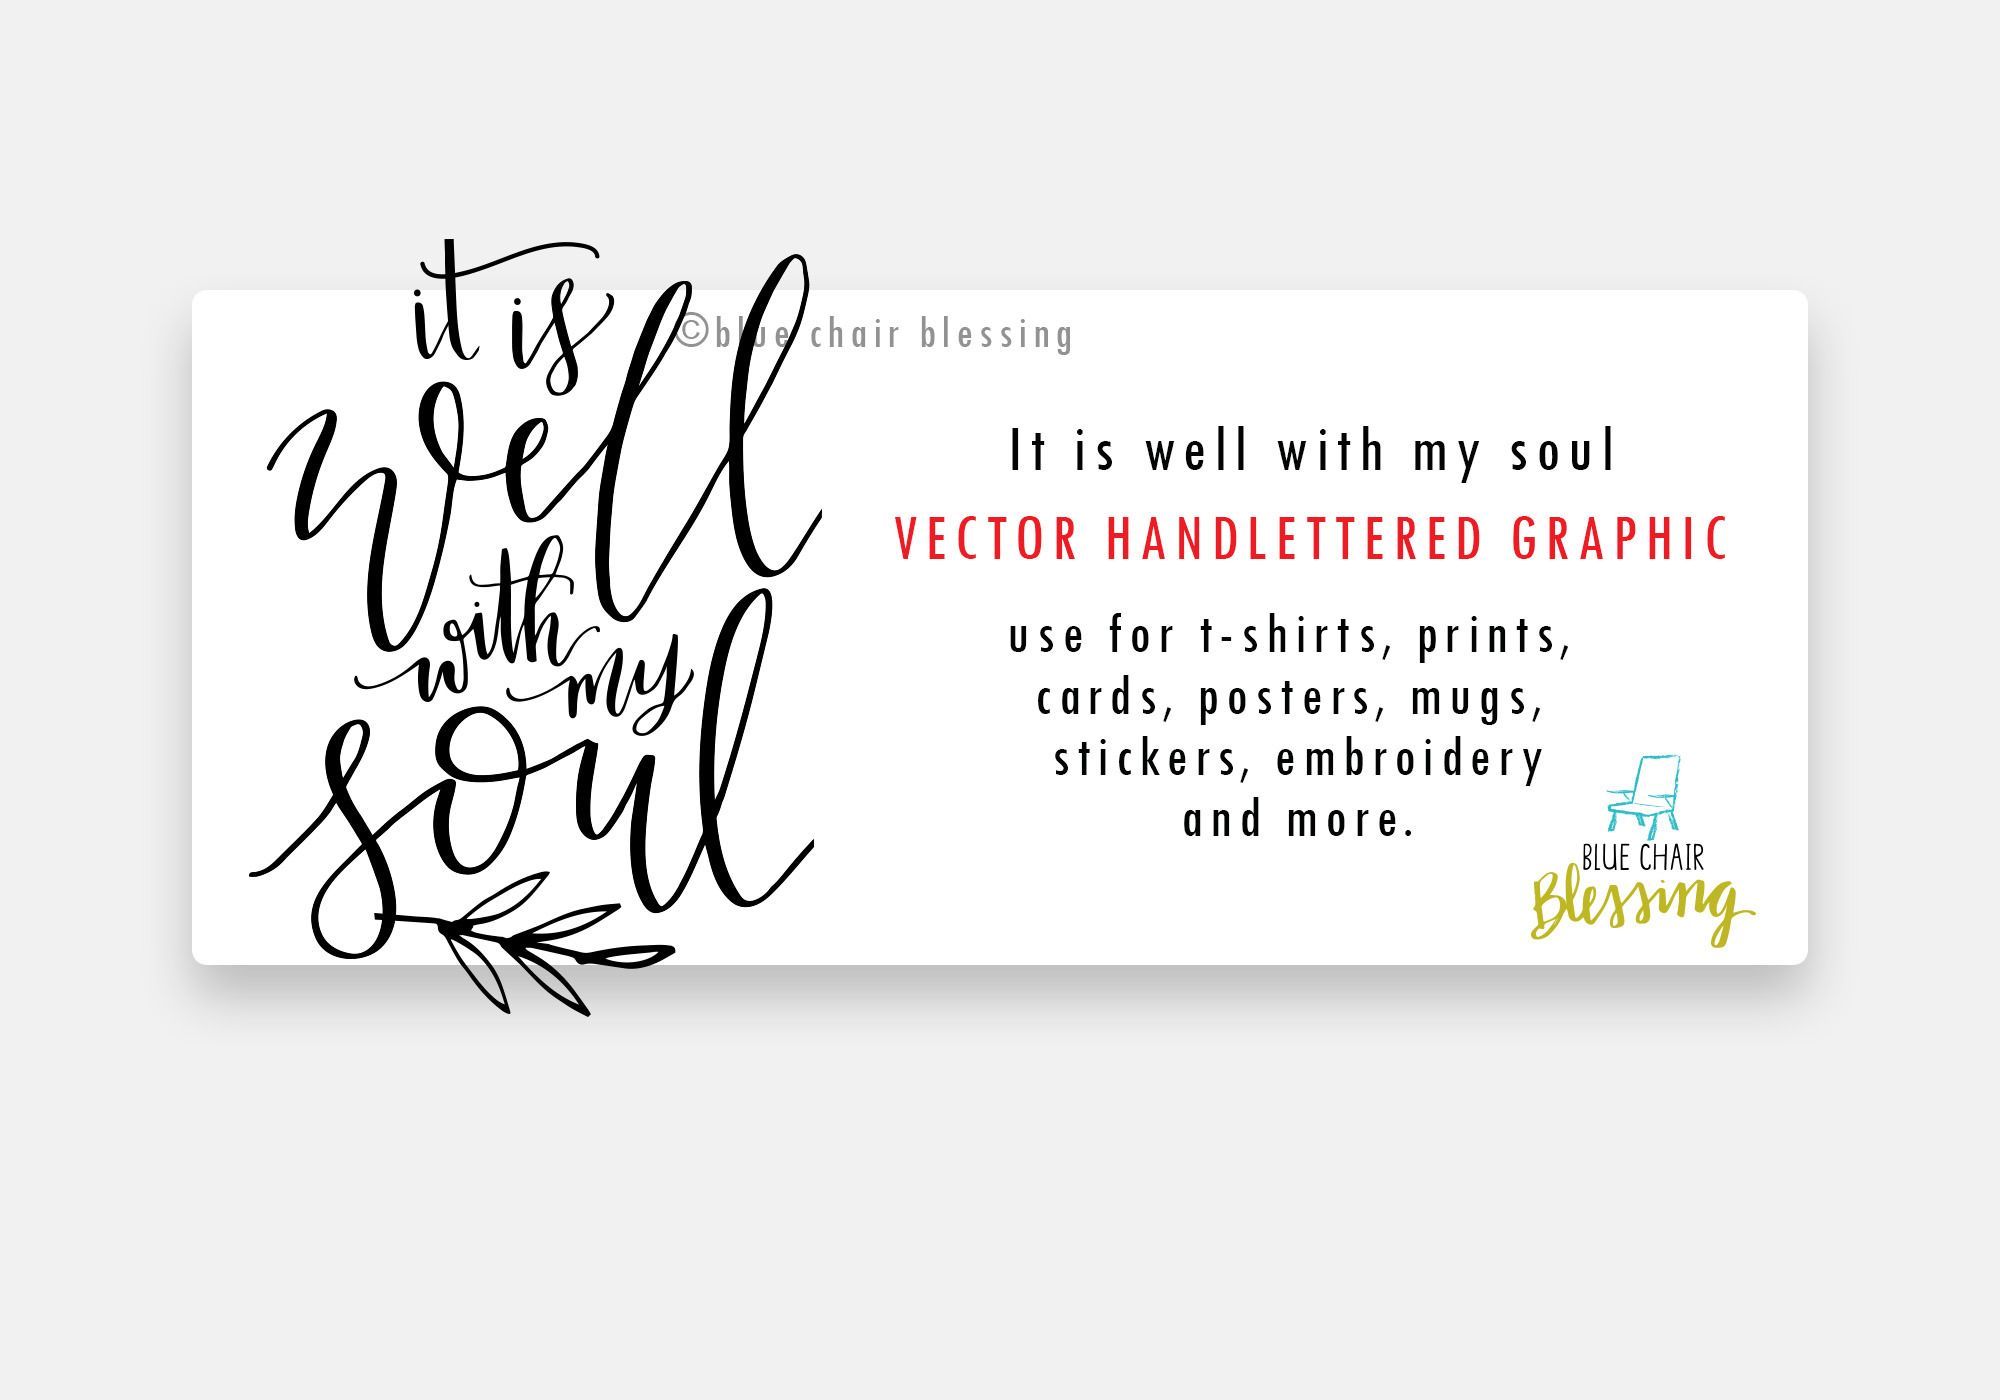 it is
well
with
my
soul
©blue chair blessing
It is well with my soul
VECTOR HANDLETTERED GRAPHIC
use for t-shirts, prints,
cards, posters, mugs,
stickers, embroidery
and more.
BLUE CHAIR
Blessing